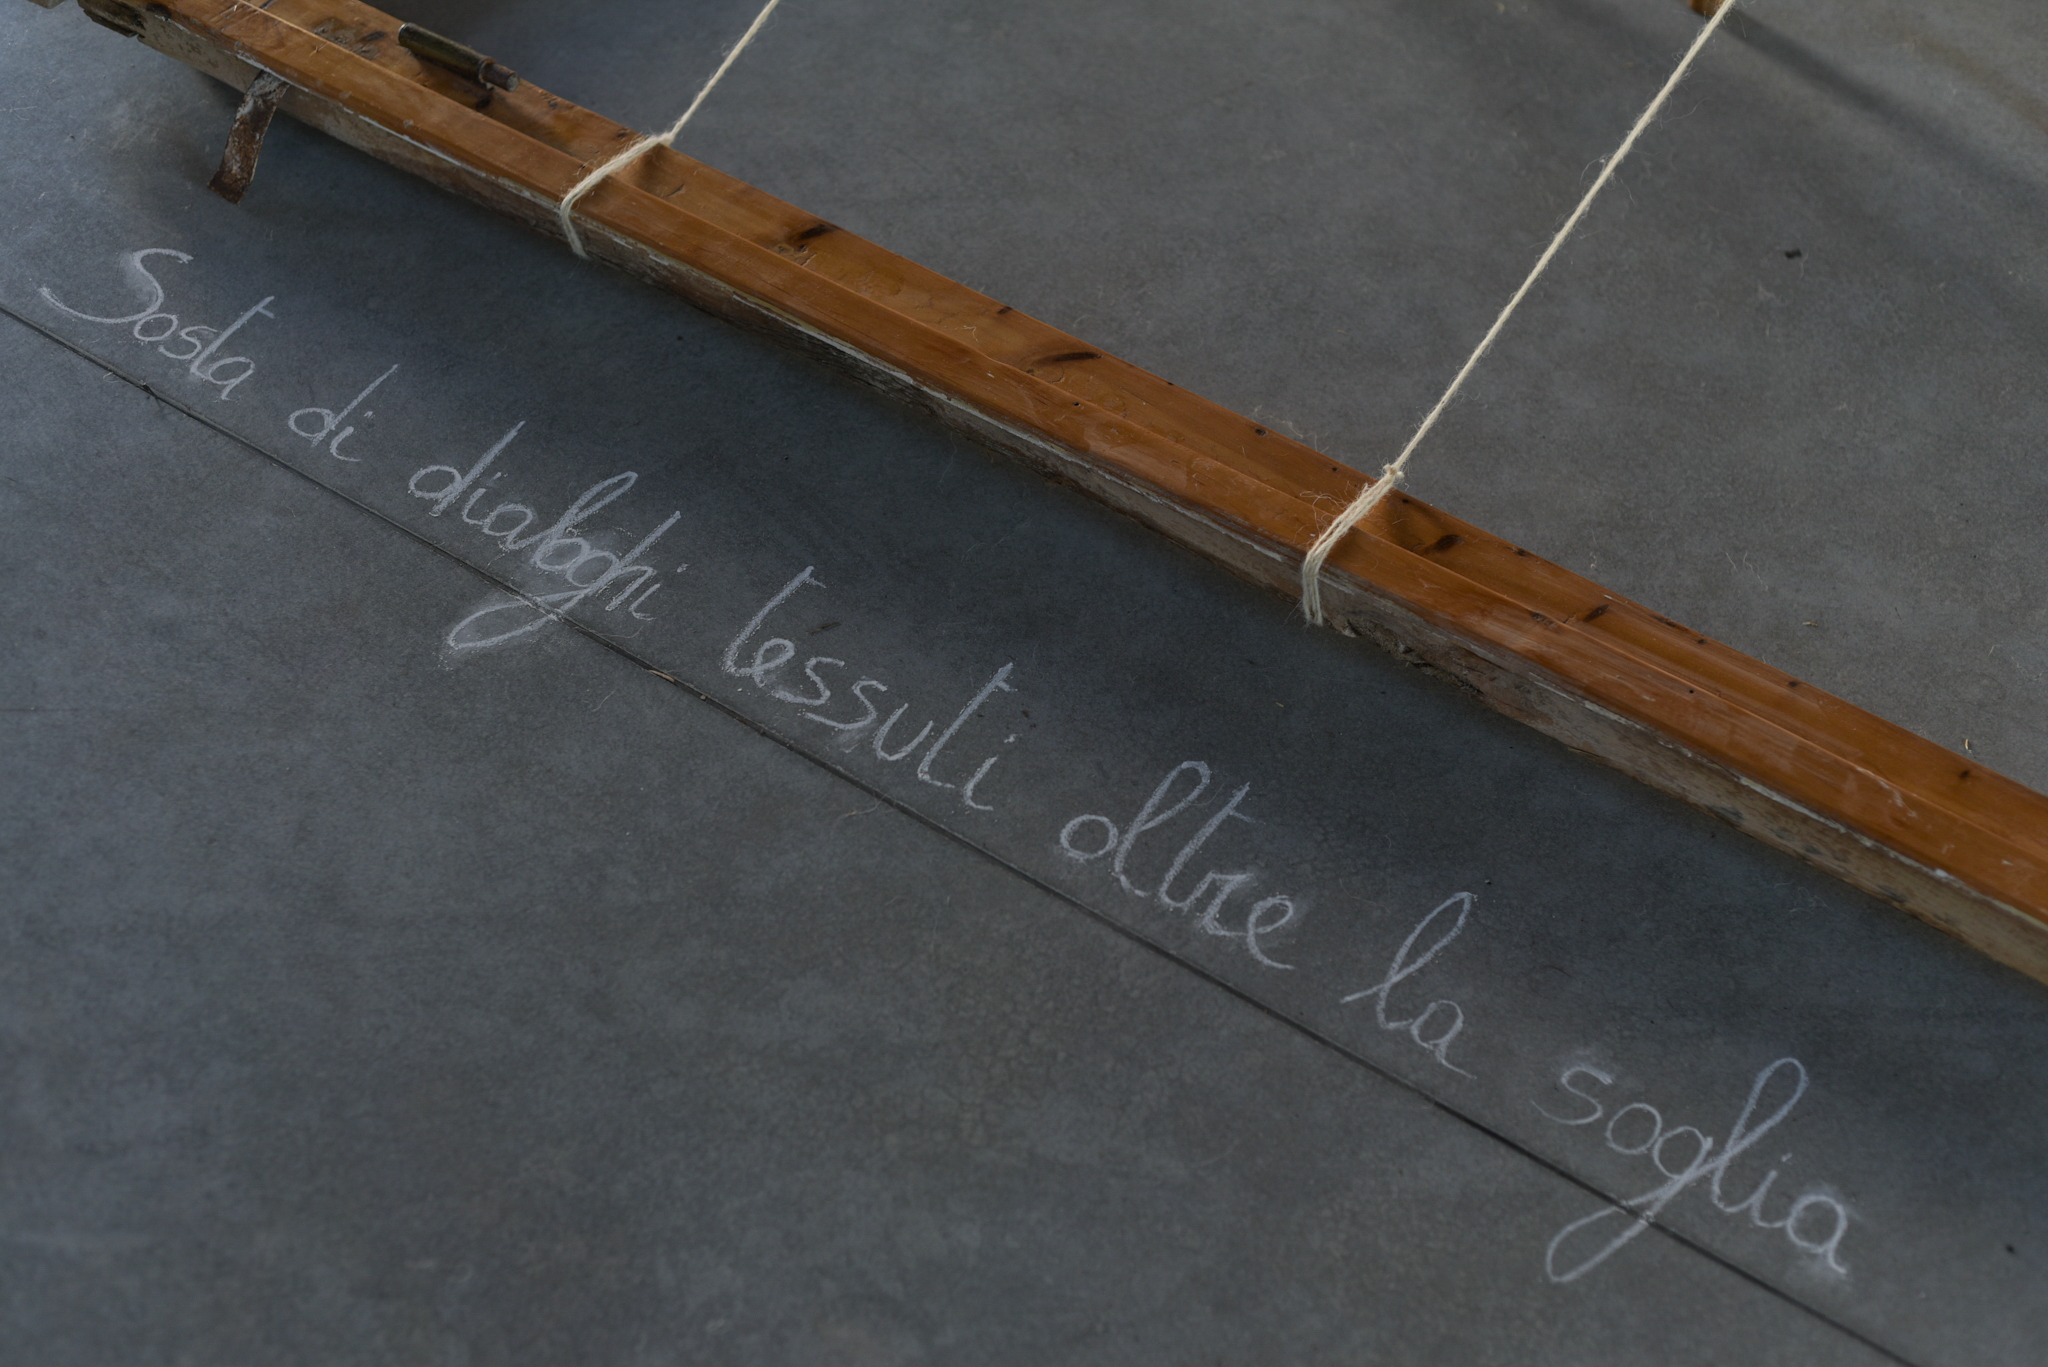 Sosta di dialoghi tessuti oltre la soglia